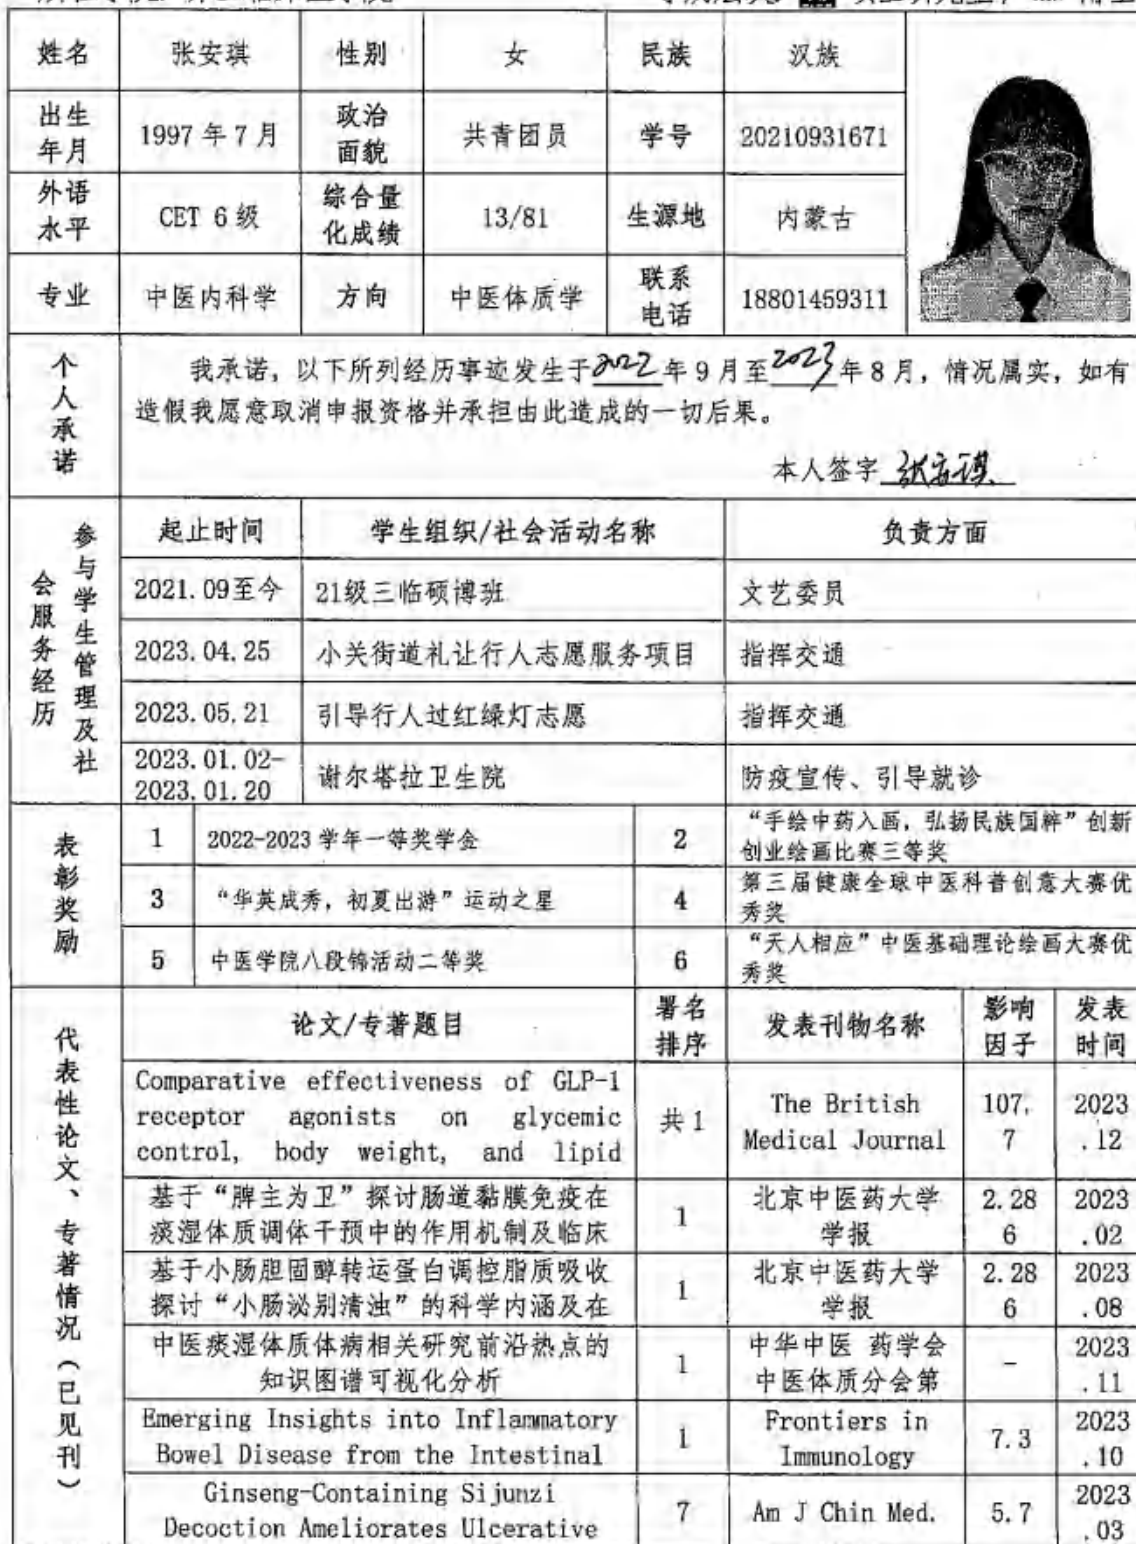 姓名 张安琪 性别 女 民族 汉族
出生年月 1997 年 7 月 政治面貌 共青团员 学号 20210931671
外语水平 CET 6 级 综合量化成绩 13/81 生源地 内蒙古
专业 中医内科学 方向 中医体质学 联系电话 18801459311
个人承诺
我承诺，以下所列经历事迹发生于2022年 9 月至2023年 8 月，情况属实，如有
造假我愿意取消申报资格并承担由此造成的一切后果。
本人签字 张安琪
参与学生管理及社
会服务经历
起止时间 学生组织/社会活动名称 负责方面
2021.09至今 21级三临硕博班 文艺委员
2023.04.25 小关街道礼让行人志愿服务项目 指挥交通
2023.05.21 引导行人过红绿灯志愿 指挥交通
2023.01.02-
2023.01.20 谢尔塔拉卫生院 防疫宣传、引导就诊
表彰奖励
1 2022-2023 学年一等奖学金 2 “手绘中药入画，弘扬民族国粹”创新
创业绘画比赛三等奖
3 “华英成秀，初夏出游”运动之星 4 第三届健康全球中医科普创意大赛优
秀奖
5 中医学院八段锦活动二等奖 6 “天人相应”中医基础理论绘画大赛优
秀奖
代表性论文、专著情况（已见刊）
论文/专著题目 署名排序 发表刊物名称 影响因子 发表时间
Comparative effectiveness of GLP-1
receptor agonists on glycemic
control, body weight, and lipid
共 1
The British
Medical Journal
107.
7
2023
.12
基于“脾主为卫”探讨肠道黏膜免疫在
痰湿体质调体干预中的作用机制及临床
1
北京中医药大学
学报
2.28
6
2023
.02
基于小肠胆固醇转运蛋白调控脂质吸收
探讨“小肠泌别清浊”的科学内涵及在
1
北京中医药大学
学报
2.28
6
2023
.08
中医痰湿体质体病相关研究前沿热点的
知识图谱可视化分析
1
中华中医 药学会
中医体质分会第
–
2023
.11
Emerging Insights into Inflammatory
Bowel Disease from the Intestinal
1
Frontiers in
Immunology
7.3
2023
.10
Ginseng-Containing Sijunzi
Decoction Ameliorates Ulcerative
7
Am J Chin Med.
5.7
2023
.03